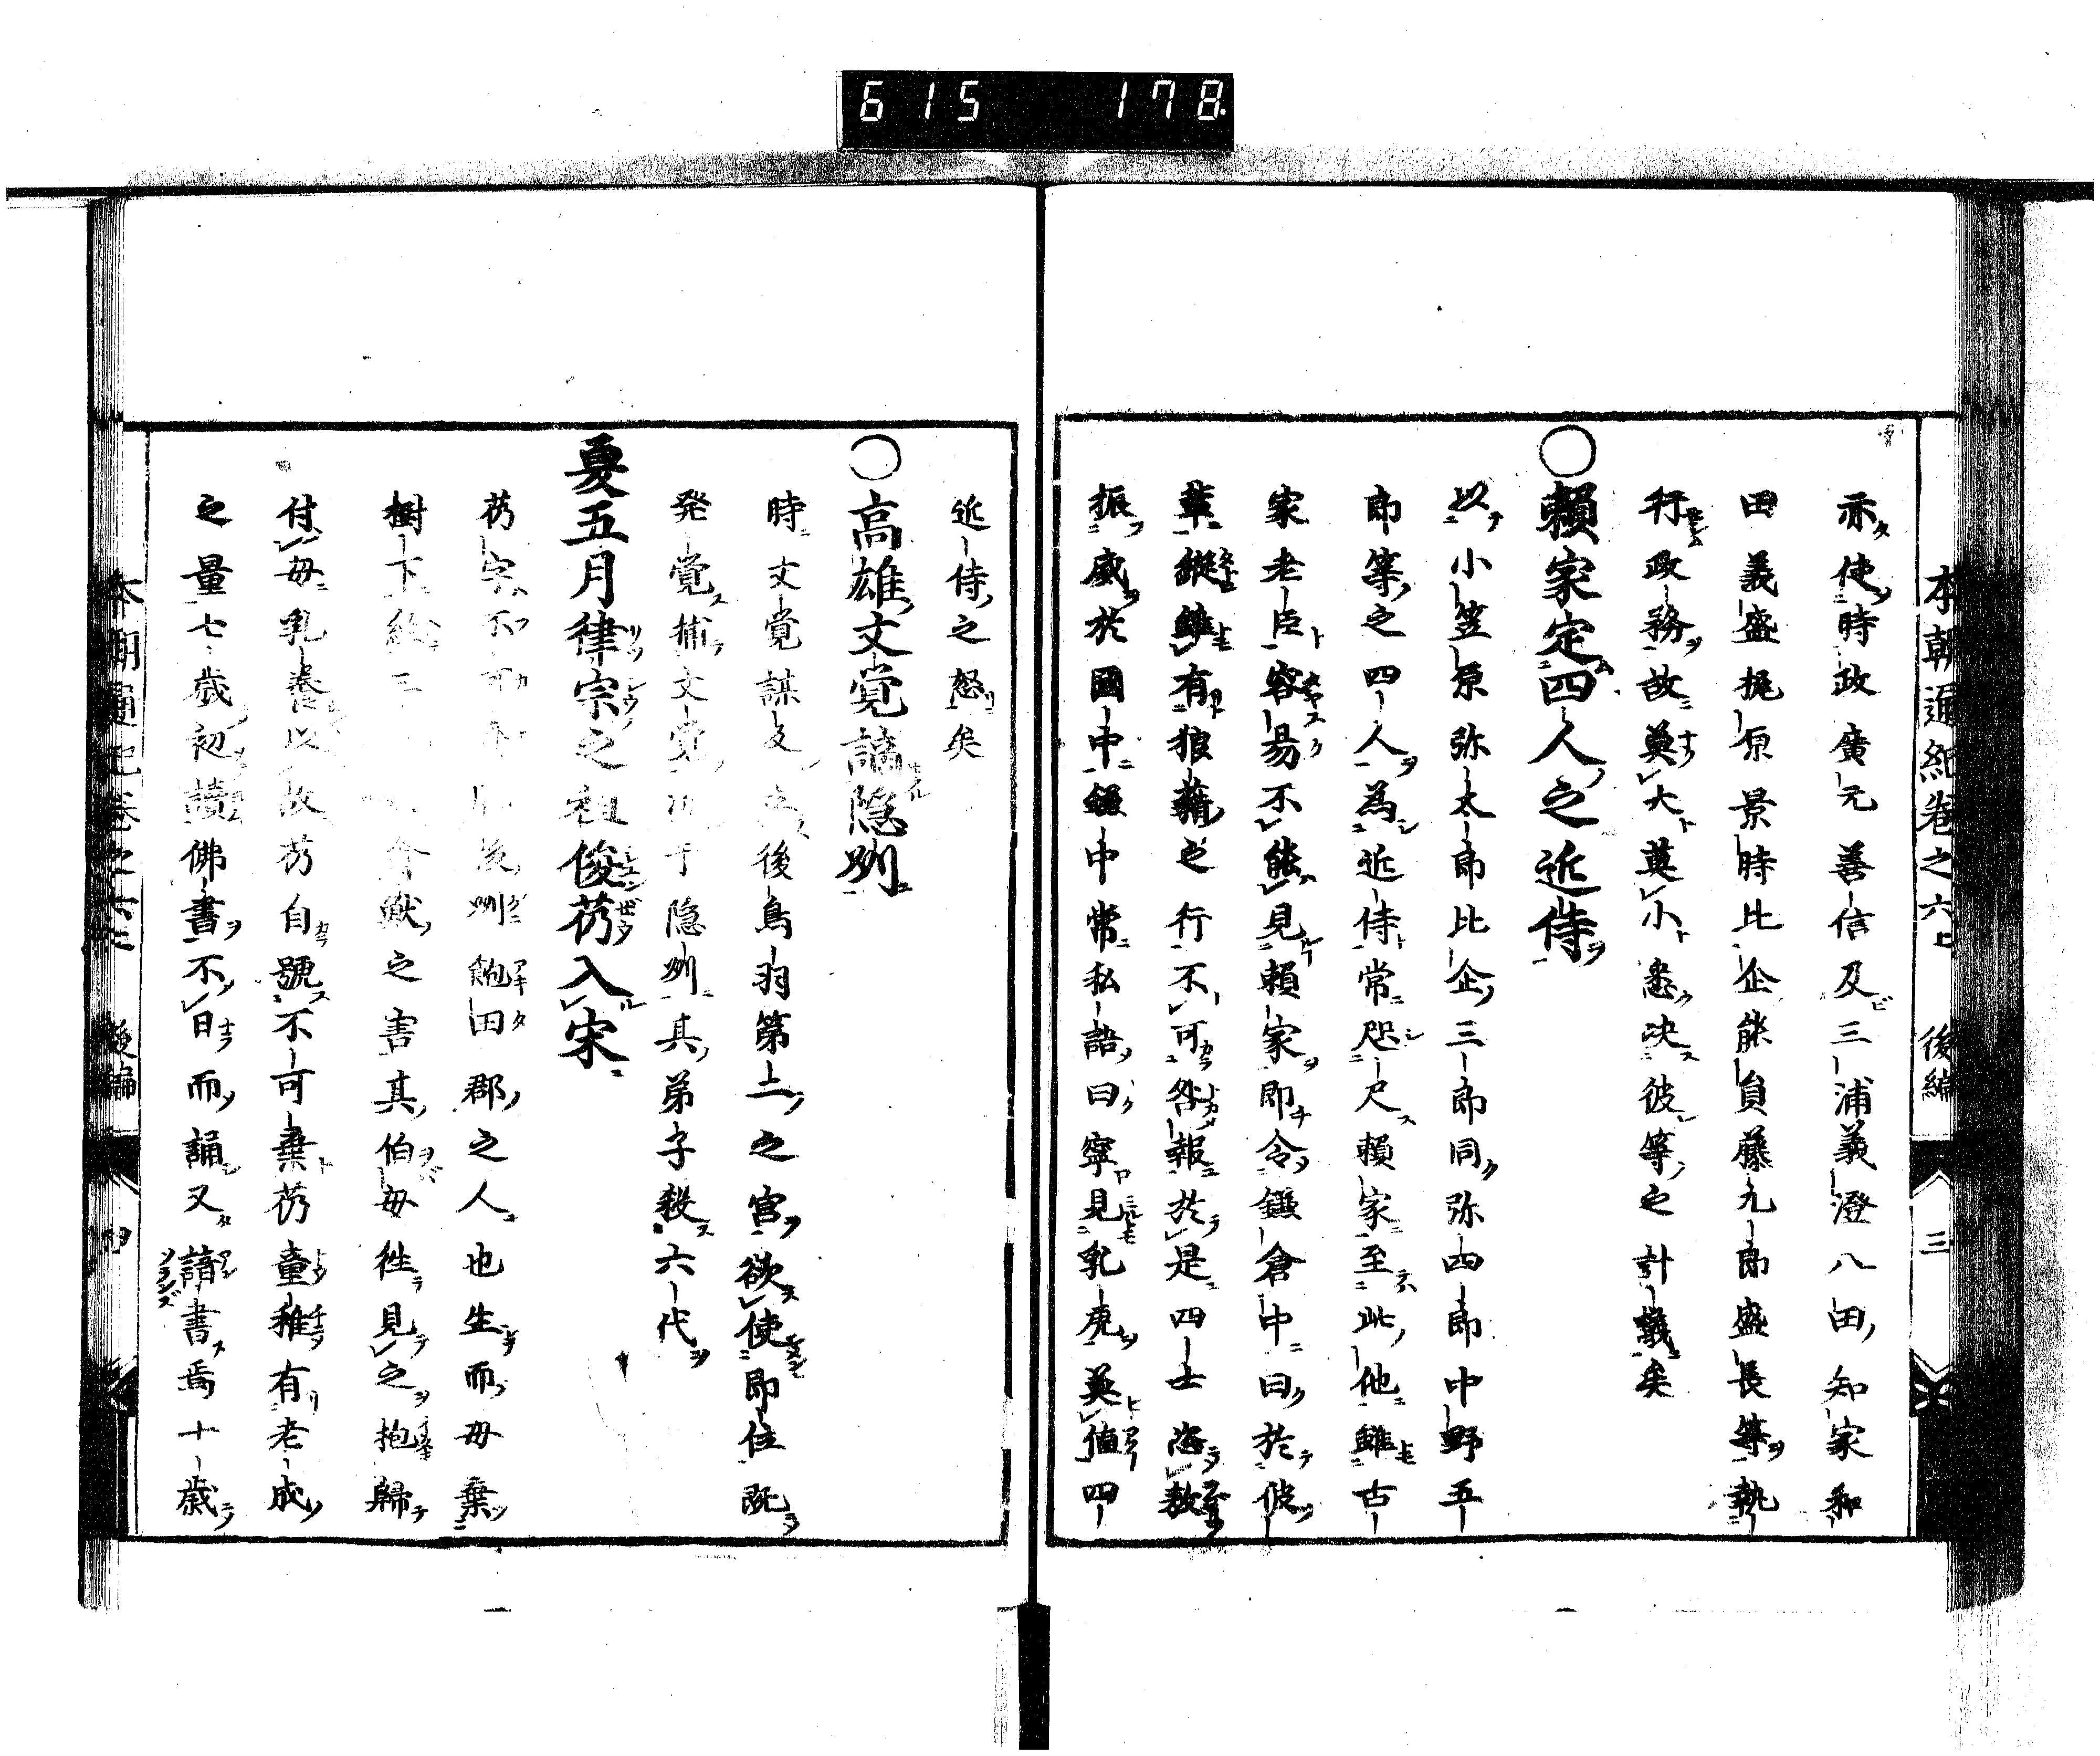 615 178
本朝通紀卷之六上 後編 三
亦使時政廣元善信及三浦義澄八田知家和
田義盛梶原景時比企能員藤九郎盛長等執
行政務故莫大莫小悉決彼等之計議矣
○賴家定四人之近侍
以小笠原弥太郎比企三郎同弥四郎中野五
郎等之四人為近侍常咫尺賴家至此他雖古
家老臣容易不能見賴家即令鎌倉中曰於彼
輩縱雖有狼藉之行不可咎報於是四士恣敖
振威於國中鎌中常私語曰寧見乳虎莫値四
近侍之怒矣
○高雄文覚謫隠州
時文覚謀反立後鳥羽第二之宮欲使即位既
発覚捕文覚流于隠州其弟子殺六代
夏五月律宗之祖俊芿入宋
芿字不可棄肥後州飽田郡之人也生而母棄
樹下経三禽獣之害其伯母徃見之抱歸
付母乳養以故芿自號不可棄芿童稚有老成
之量七歳初讀佛書不日而誦又諳書焉十歳
本朝通紀卷之六上 後編 四